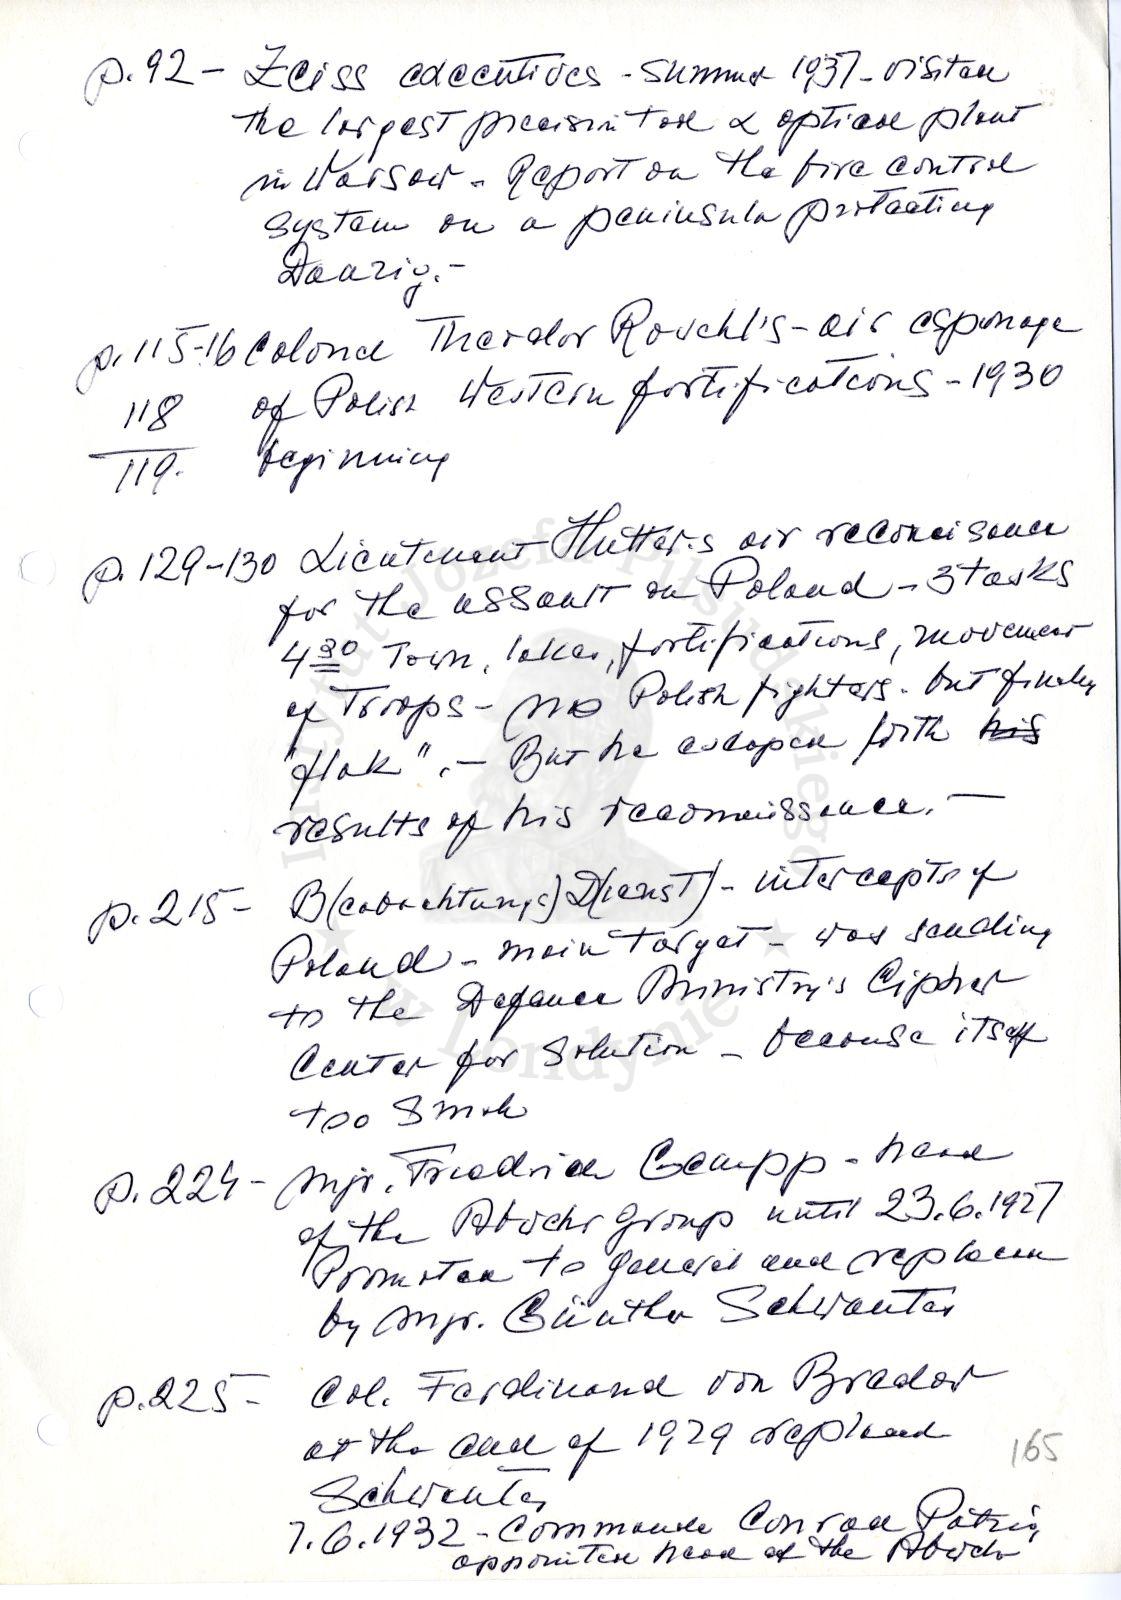 p. 92 - Zeiss executives - summer 1937 - visited
the largest precision tool & optical plant
in Warsaw - Report on the fire control
system on a peninsula protecting
Danzig. -
p. 115-16 Colonel Theodor Rowehl's - air espionage
118 of Polish Western fortifications - 1930
119. beginning
p. 129-130 Lieutenant Hutter's air reconaisance
for the assault on Poland - 3 tasks
4 30 Town, lakes, fortifications, movement
of Troops - no Polish fighters. but finally
"flak". - But he escaped with his
results of his reconnaissance. -
p. 215 - B(eobachtungs)D(ienst) - intercepts of
Poland - main target - was sending
to the Defence Ministry's Cipher
Center for Solution - because itself
too small
p. 224 - mjr. Friedrich Gempp - head
of the Abwehr group until 23.6.1927
Promoted to general and replaced
by mjr. Günther Schwantes
p. 225 - Col. Ferdinand von Bredow
at the end of 1929 replaced
Schwantes
7.6.1932 - Commander Conrad Patzig
appointed head of the Abwehr
165
Instytut Józefa Piłsudskiego
w Londynie